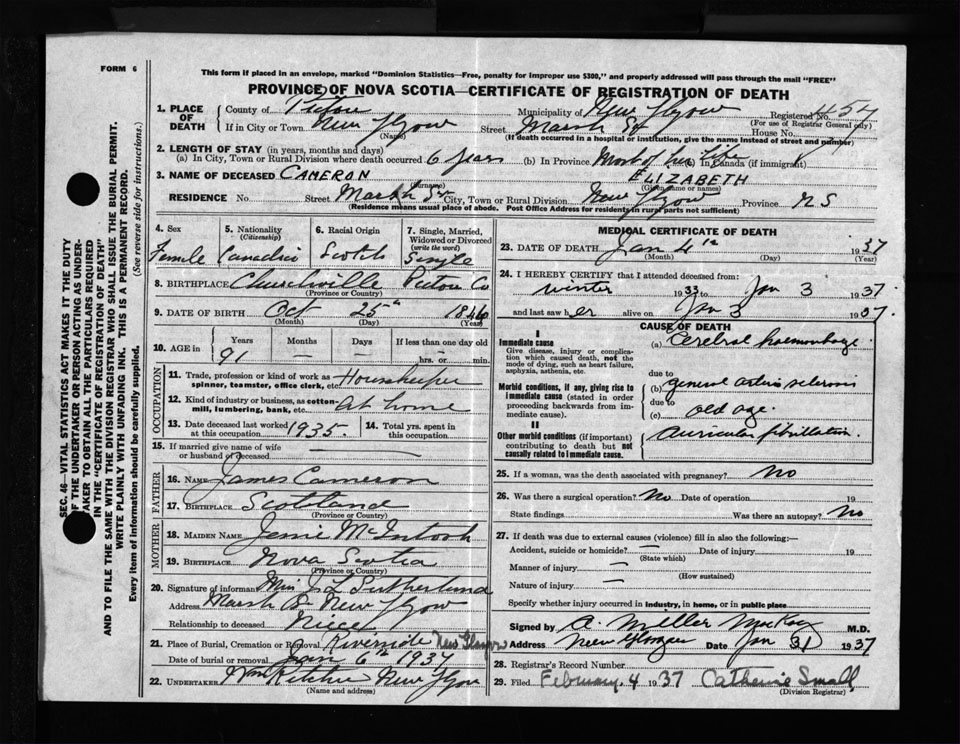 FORM 6
This form if placed in an envelope, marked "Dominion Statistics—Free, penalty for improper use $300," and properly addressed will pass through the mail "FREE"
PROVINCE OF NOVA SCOTIA—CERTIFICATE OF REGISTRATION OF DEATH
SEC. 46—VITAL STATISTICS ACT MAKES IT THE DUTY
OF THE UNDERTAKER OR PERSON ACTING AS UNDER-
TAKER TO OBTAIN ALL THE PARTICULARS REQUIRED
IN THE "CERTIFICATE OF REGISTRATION OF DEATH"
AND TO FILE THE SAME WITH THE DIVISION REGISTRAR WHO SHALL ISSUE THE BURIAL PERMIT.
WRITE PLAINLY WITH UNFADING INK. THIS IS A PERMANENT RECORD.
Every item of information should be carefully supplied. (See reverse side for instructions.)
1. PLACE OF DEATH
County of Pictou Municipality of New Glasgow Registered No. 454
(For use of Registrar General only)
If in City or Town New Glasgow Street Marsh St House No.
(Name) (If death occurred in a hospital or institution, give the name instead of street and number)
2. LENGTH OF STAY (in years, months and days)
(a) In City, Town or Rural Division where death occurred 6 years (b) In Province Most of her Life In Canada (if immigrant)
3. NAME OF DECEASED CAMERON ELIZABETH
(Surname) (Given name or names)
RESIDENCE No. Street Marsh St City, Town or Rural Division New Glasgow Province N S
(Residence means usual place of abode. Post Office Address for residents in rural parts not sufficient)
4. Sex 5. Nationality 6. Racial Origin 7. Single, Married,
(Citizenship) Widowed or Divorced
(write the word)
Female Canadian Scotch Single
8. BIRTHPLACE Churchville Pictou Co
(Province or Country)
9. DATE OF BIRTH Oct 25th 1846
(Month) (Day) (Year)
10. AGE in Years Months Days If less than one day old
91 — — hrs. or min.
OCCUPATION
11. Trade, profession or kind of work as Housekeeper
spinner, teamster, office clerk, etc.
12. Kind of industry or business, as cotton- At home
mill, lumbering, bank, etc.
13. Date deceased last worked 1935. 14. Total yrs. spent in
at this occupation this occupation
15. If married give name of wife
or husband of deceased —
FATHER
16. NAME James Cameron
17. BIRTHPLACE Scotland
(Province or Country)
MOTHER
18. MAIDEN NAME Jessie McIntosh
19. BIRTHPLACE Nova Scotia
(Province or Country)
20. Signature of informant J L Sutherland
Address Marsh St New Glasgow
Relationship to deceased Niece
21. Place of Burial, Cremation or Removal Riverside New Glasgow
Date of burial or removal Jan 6th 1937
22. UNDERTAKER Wm Ritchie New Glasgow
(Name and address)
MEDICAL CERTIFICATE OF DEATH
23. DATE OF DEATH Jan 4th 1937
(Month) (Day) (Year)
24. I HEREBY CERTIFY that I attended deceased from:
winter 1933 to Jan 3 1937
and last saw her alive on Jan 3 1937.
CAUSE OF DEATH
I
Immediate cause (a) Cerebral haemorrhage.
Give disease, injury or complication which caused death, not the mode of dying, such as heart failure, asphyxia, asthenia, etc.
due to
Morbid conditions, if any, giving rise to (b) general arterio sclerosis
immediate cause (stated in order due to
proceeding backwards from immediate cause). (c) old age.
II
Other morbid conditions (if important) auricular fibrillation.
contributing to death but not
causally related to immediate cause.
25. If a woman, was the death associated with pregnancy? no
26. Was there a surgical operation? No Date of operation 19
State findings Was there an autopsy? No
27. If death was due to external causes (violence) fill in also the following:—
Accident, suicide or homicide? — Date of injury 19
(State which)
Manner of injury —
(How sustained)
Nature of injury —
Specify whether injury occurred in industry, in home, or in public place
Signed by A. Miller MacKay M.D.
Address New Glasgow Date Jan 31 1937
28. Registrar's Record Number
29. Filed February. 4 1937 Catherine Small
(Division Registrar)